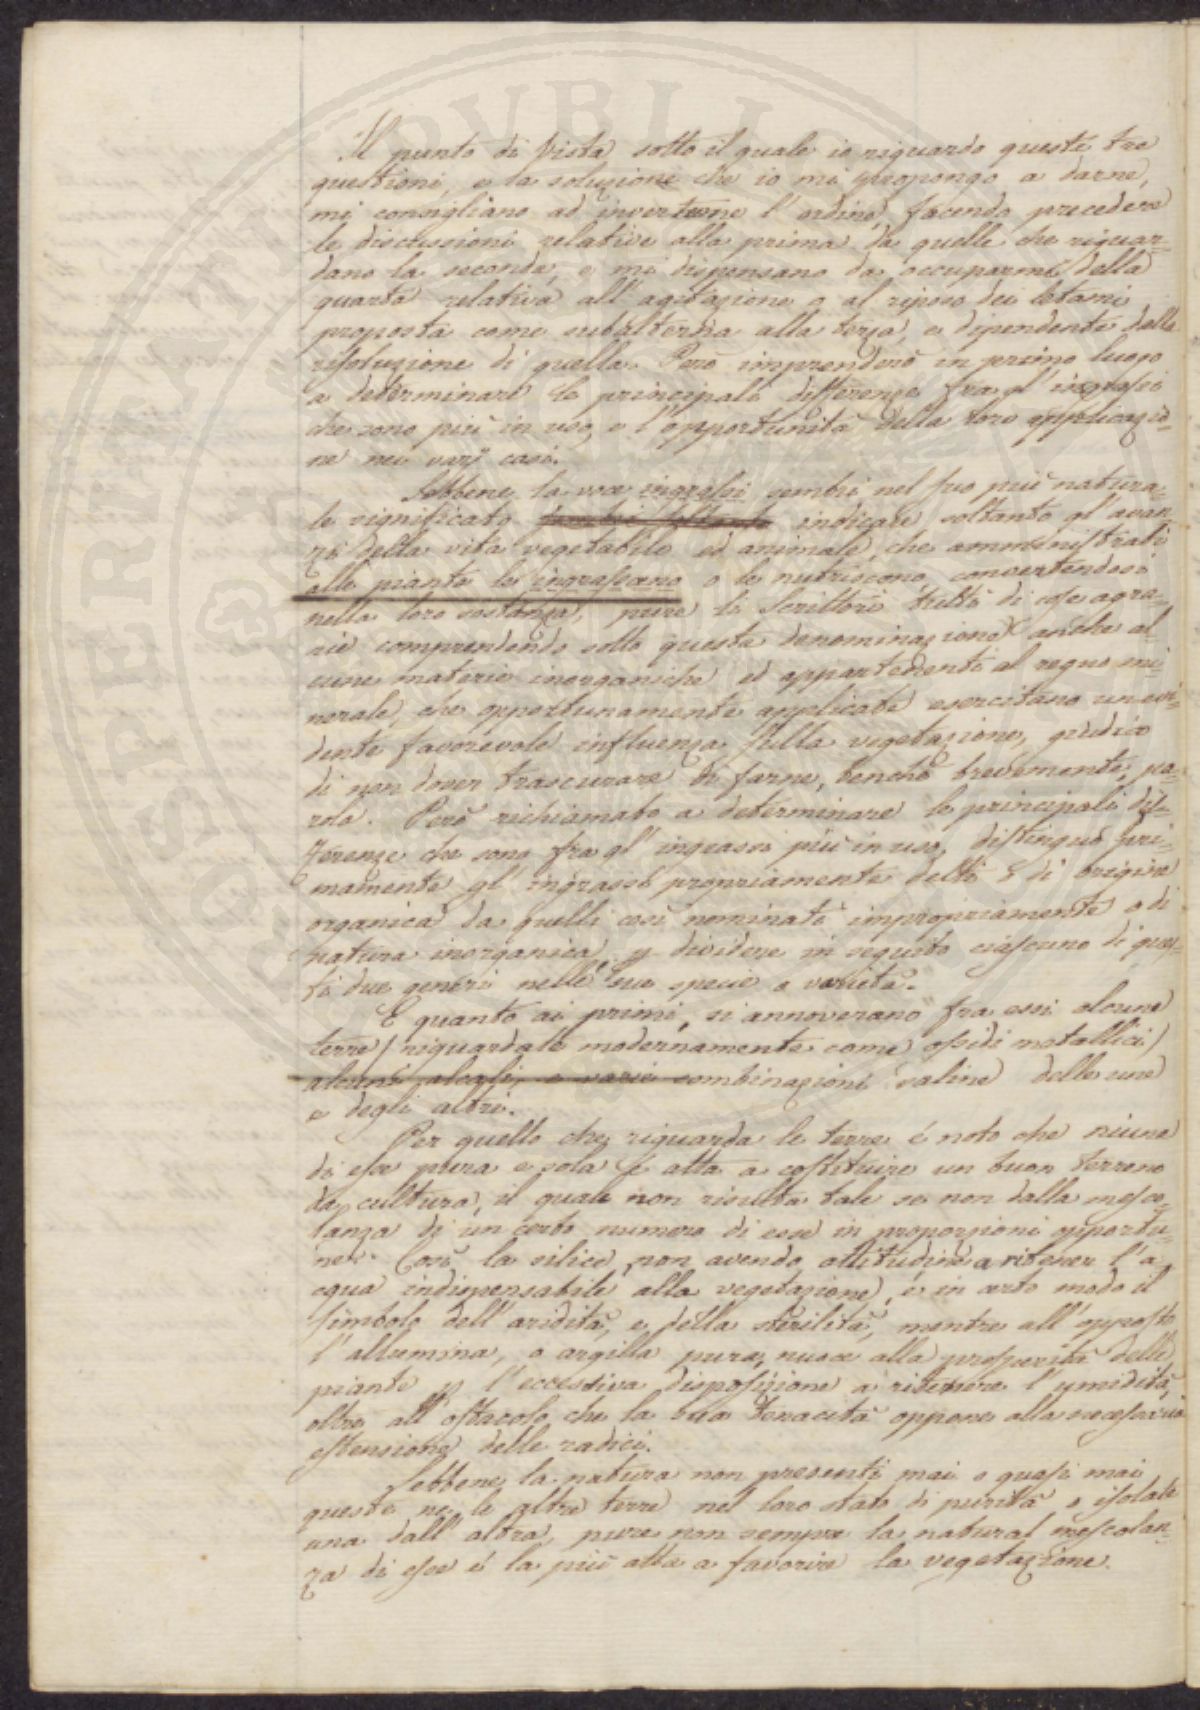 Il punto di vista sotto il quale io riguardo queste tre
questioni, e la soluzione che io mi propongo a darne,
mi consigliano ad invertirne l'ordine, facendo precedere
le discussioni relative alla prima da quelle che riguar-
dano la seconda, e mi dispensano da occuparmi della
quarta relativa all'agitazione o al riposo dei letami
proposta come subalterna alla terza, e dipendente dalla
risoluzione di quella. Però imprenderò in primo luogo
a determinare le principali differenze fra gl'ingrassi
che sono più in uso, e l'opportunità della loro applicazio-
ne nei varj casi.
Sebbene la voce ingrassi sembri nel suo più natura-
le significato indicare soltanto gl'avan-
zi della vita vegetabile ed animale, che amministrati
alle piante le ingrassano o le nutriscono, convertendosi
nella loro sostanza, pure li Scrittori tutti di cose agra-
rie comprendendo sotto questa denominazione anche al-
cune materie inorganiche ed appartenenti al regno mi-
nerale, che opportunamente applicate esercitano un evi-
dente favorevole influenza sulla vegetazione, giudico
di non dover trascurare di farne, benchè brevemente, pa-
rola. Però richiamato a determinare le principali dif-
ferenze che sono fra gl'ingrassi più in uso, distinguo pri-
mamente gl'ingrassi propriamente detti e di origine
organica da quelli così nominati impropriamente e di
natura inorganica, p dividere in seguito ciascuno di ques-
ti due generi nelle sue specie e varietà.
E quanto ai primi, si annoverano fra essi alcune
terre (riguardate modernamente come ossidi metallici)
alcuni alcali, e varie combinazioni saline delle une
e degli altri.
Per quello che riguarda le terre è noto che niuna
di esse pura e sola è atta a costituire un buon terreno
da cultura, il quale non risulta tale se non dalla mesco-
lanza di un certo numero di esse in proporzioni opportu-
ne. Così la silice, non avendo attitudine a ritener l'a-
cqua indispensabile alla vegetazione, è in certo modo il
simbolo dell'aridità, e della sterilità, mentre all'opposto
l'allumina, o argilla pura, nuoce alla prosperità delle
piante p l'eccessiva disposizione a ritenere l'umidità,
oltre all'ostacolo che la sua tenacità oppone alla necessaria
estensione delle radici.
Sebbene la natura non presenti mai o quasi mai
queste nè le altre terre nel loro stato di purità e isolate
una dall'altra, pure non sempre la natural mescolan-
za di esse è la più atta a favorire la vegetazione.